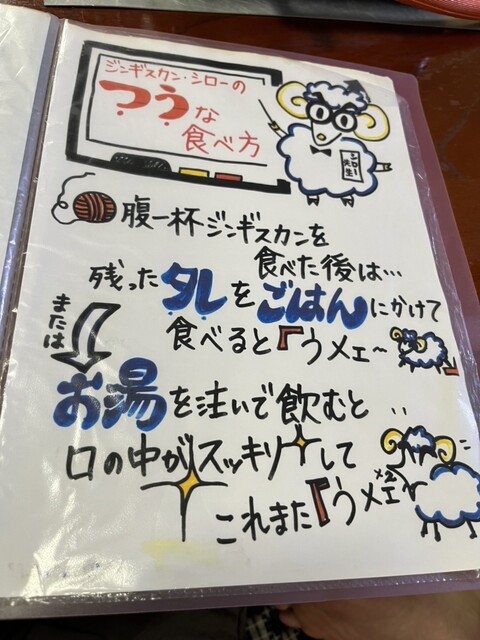 ジンギスカン・シローの
つうな
食べ方
シロー
先生
腹一杯ジンギスカンを
食べた後は…
残ったタレをごはんにかけて
食べると『うメェ～
または
お湯を注いで飲むと
口の中がスッキリして
これまた『うメェ×2